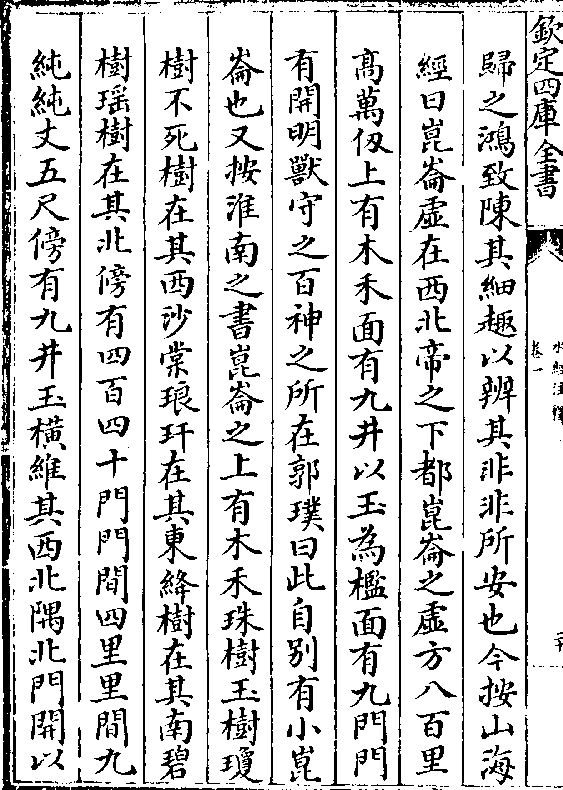 欽定四庫全書
水經注釋
卷一
二十
歸之鴻致陳其細趣以辨其非非所安也今按山海
經曰崑崙虛在西北帝之下都崑崙之虛方八百里
髙萬仭上有木禾面有九井以玉為檻面有九門門
有開明獸守之百神之所在郭璞曰此自别有小崑
崙也又按淮南之書崑崙之上有木禾珠樹玉樹瓊
樹不死樹在其西沙棠琅玕在其東絳樹在其南碧
樹瑶樹在其北傍有四百四十門門間四里里間九
純純丈五尺傍有九井玉橫維其西北隅北門開以